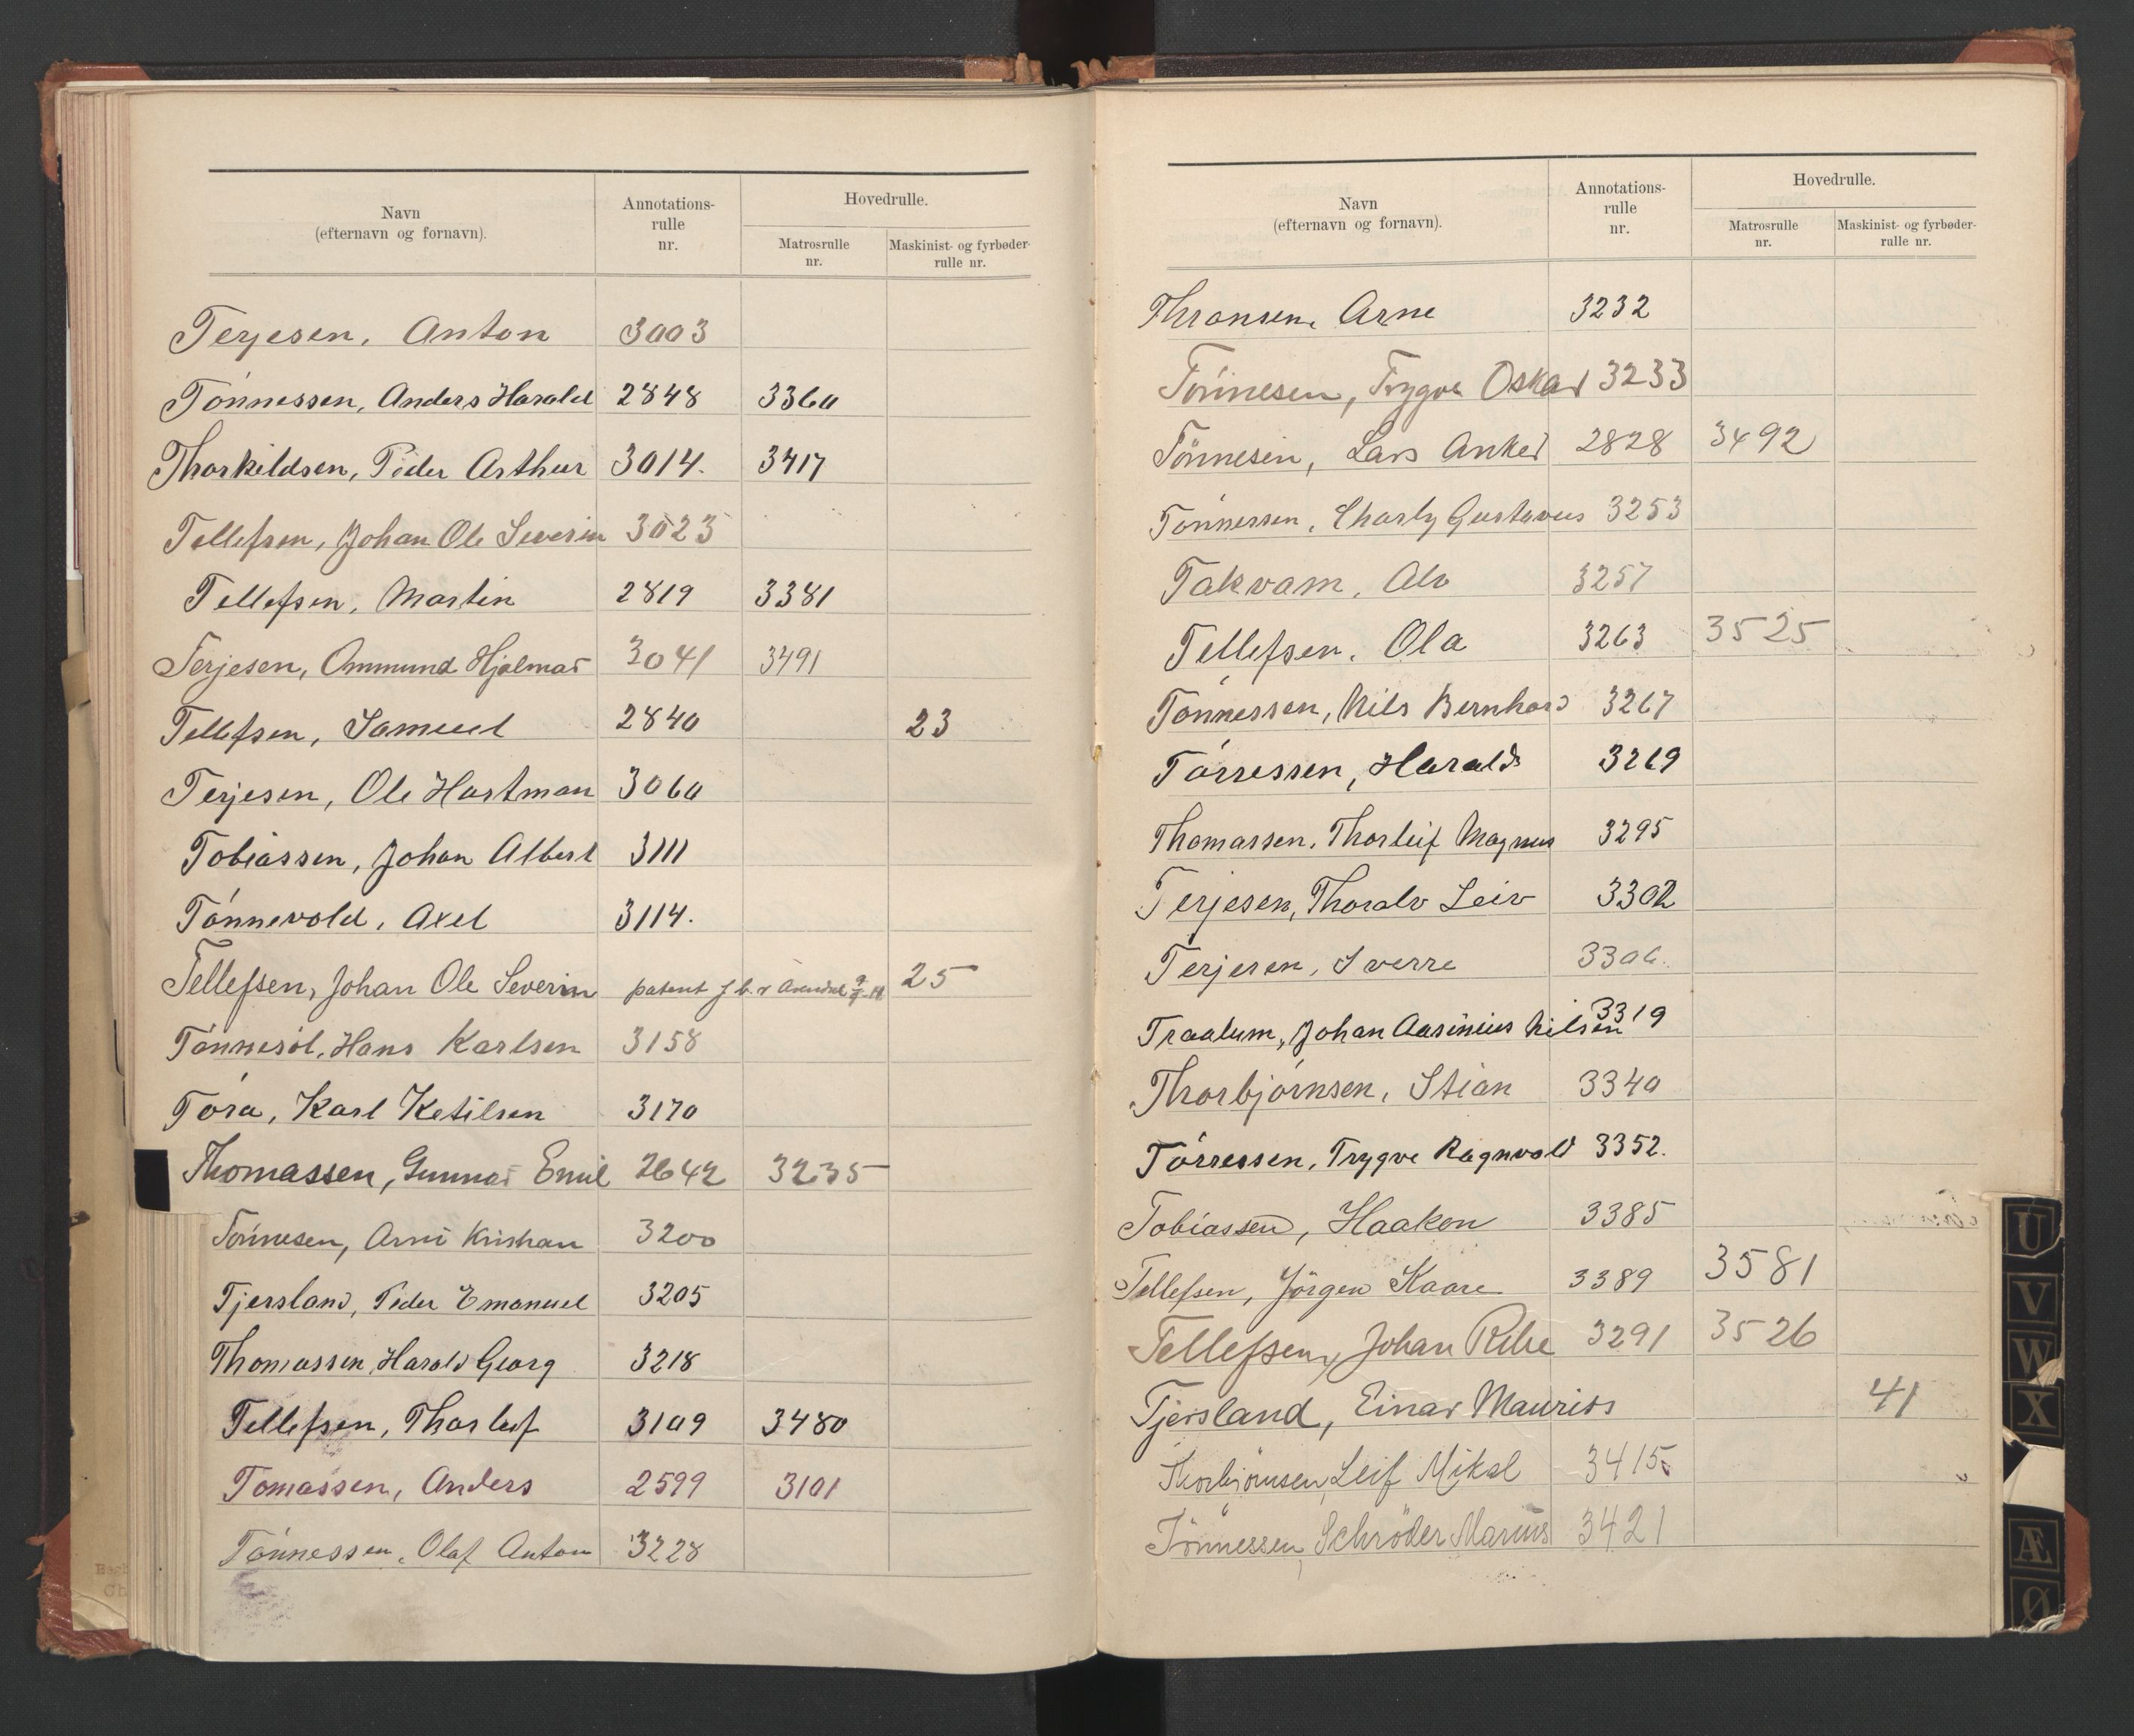 Navn
(efternavn og fornavn).
Annotations-
rulle
nr.
Hovedrulle.
Matrosrulle
nr.
Maskinist- og fyrbøder-
rulle nr.
Terjesen, Anton 3003
Tönnessen, Anders Harald 2848 3360
Thorkildsen, Peder Arthur 3014. 3417
Tellefsen, Johan Ole Severin 3023
Tellefsen, Martin 2819 3381
Terjesen, Ommund Hjalmar 3041 3491
Tellefsen, Samuel 2840 23
Terjesen, Ole Hartman 3060
Tobiassen, Johan Albert 3111
Tönnevold, Axel 3114.
Tellefsen, Johan Ole Severin patent f b. v Arendal 25
Tönnesöl, Hans Karlsen 3158
Töra, Karl Ketilsen 3170
Thomassen, Gunnar Emil 2642 3235
Tönnesen, Arne Kristian 3200
Tjersland, Peder Emanuel 3205
Thomassen, Harald Georg 3218
Tellefsen, Thorleif 3109 3480
Tomassen, Anders 2599 3101
Tönnessen, Olaf Anton 3228
Navn
(efternavn og fornavn).
Annotations-
rulle
nr.
Hovedrulle.
Matrosrulle
nr.
Maskinist- og fyrbøder-
rulle nr.
Thronsen, Arne 3232
Tönnesen, Trygve Oskar 3233
Tönnesen, Lars Anker 2828 3492
Tönnessen, Charly Gustavus 3253
Takvam, Alv 3257
Tellefsen, Ola 3263 3525
Tönnessen, Nils Bernhard 3267
Törressen, Harald 3269
Thomassen, Thorleif Magnus 3295
Terjesen, Thoralv Leiv 3302
Terjesen, Sverre 3306.
Traalum, Johan Aasinius Nilsen 3319
Thorbjörnsen, Stian 3340
Törressen, Trygve Ragnvald 3352.
Tobiassen, Haakon 3385
Tellefsen, Jörgen Kaare 3389 3581
Tellefsen, Johan Ribe 3291 3526
Tjersland, Einar Maurits 41
Thorbjörnsen, Leif Mikal 3415
Tönnessen, Schröder Marius 3421
U
V
W
X
Æ
Ø